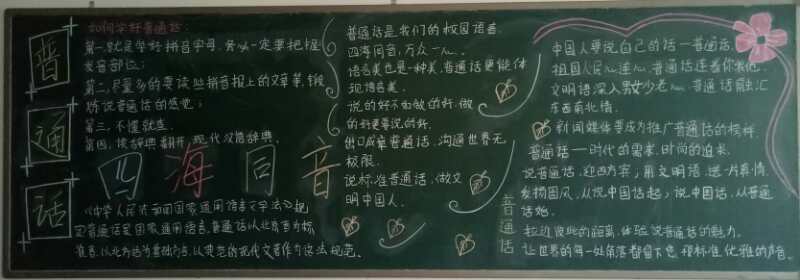 普通话
如何学好普通话:
第一,就是学好拼音字母,务必一定要把握
发音部位;
第二,尽量多的要读些拼音报上的文章等,锻
炼说普通话的感觉;
第三,不懂就查.
第四,把辞典翻开,现代汉语辞典.
四海同音
《中华人民共和国国家通用语言文字法》规
定普通话是国家通用语言,普通话以北京语音为标
准音,以北方话为基础方言,以典范的现代文著作为语法规范.
普通话是我们的校园语言.
四海同音,万众一心.
语言美也是一种美,普通话更能体
现语言美.
说的好不如做的好,做
的好更要说的好.
出口成章普通话,沟通世界无
极限.
说标准普通话,做文
明中国人.
中国人要说自己的话—普通话.
祖国人民心连心,普通话连着你我他.
文明语深入男女少老心,普通话融汇
东西南北情.
新闻媒体要成为推广普通话的榜样.
普通话—时代的需求,时尚的追求.
说普通话,迎四方宾,用文明语,送一片真情.
爱我国风,从说中国话起,说中国话,从普通
话始.
拉近彼此的距离,体验说普通话的魅力.
让世界的每一处角落都留下您标准优雅的声音.
普通话